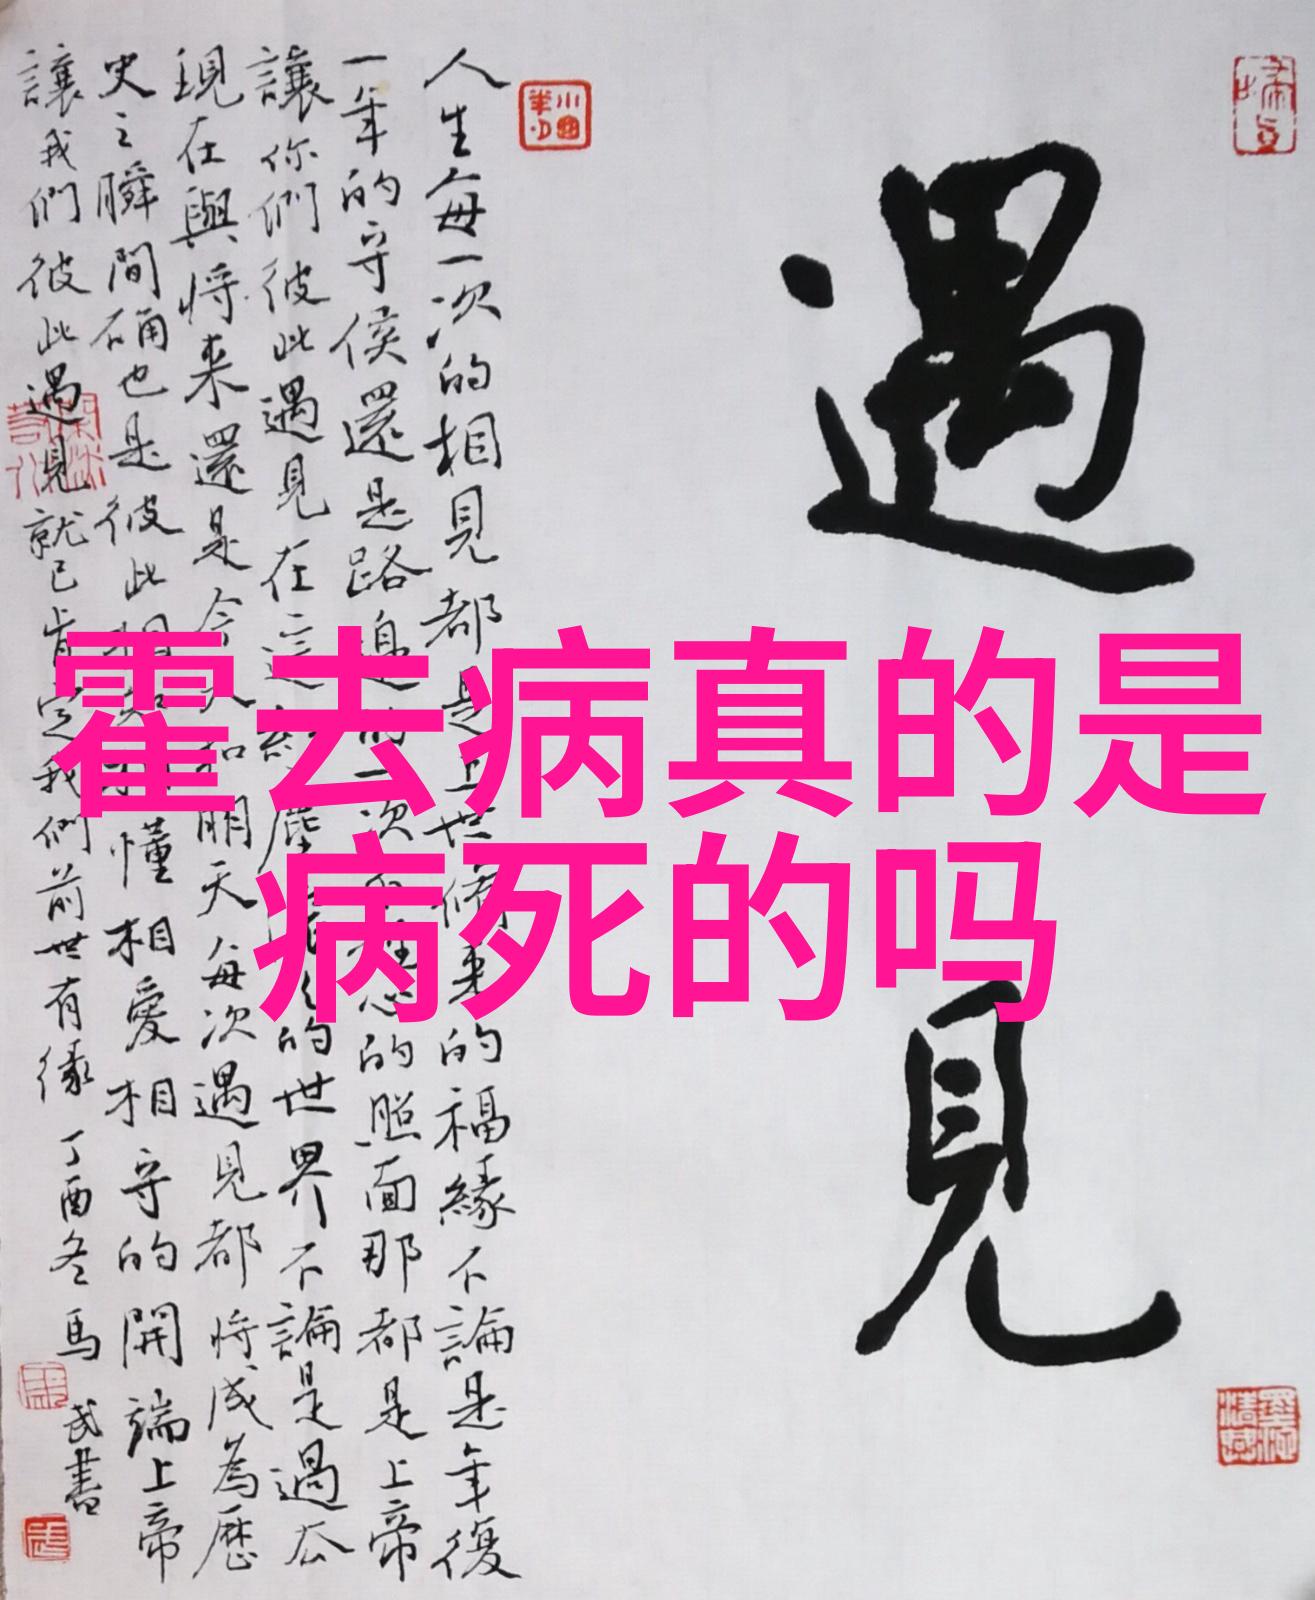 霍去病真的是
病死的吗
遇見
人生每一次的相見都是上世修来的福緣不論是年復
一年的守侯還是路邊的一次的照面那都是上帝
讓你們彼此遇見在這的世界不論是過去
現在與將来還是今天和明天每次遇見都將成為歷
史之瞬間确也是彼此相知相懂相愛相守的開端上帝
讓我們彼此遇見就已肯定我們前世有緣 丁酉冬馬
武書